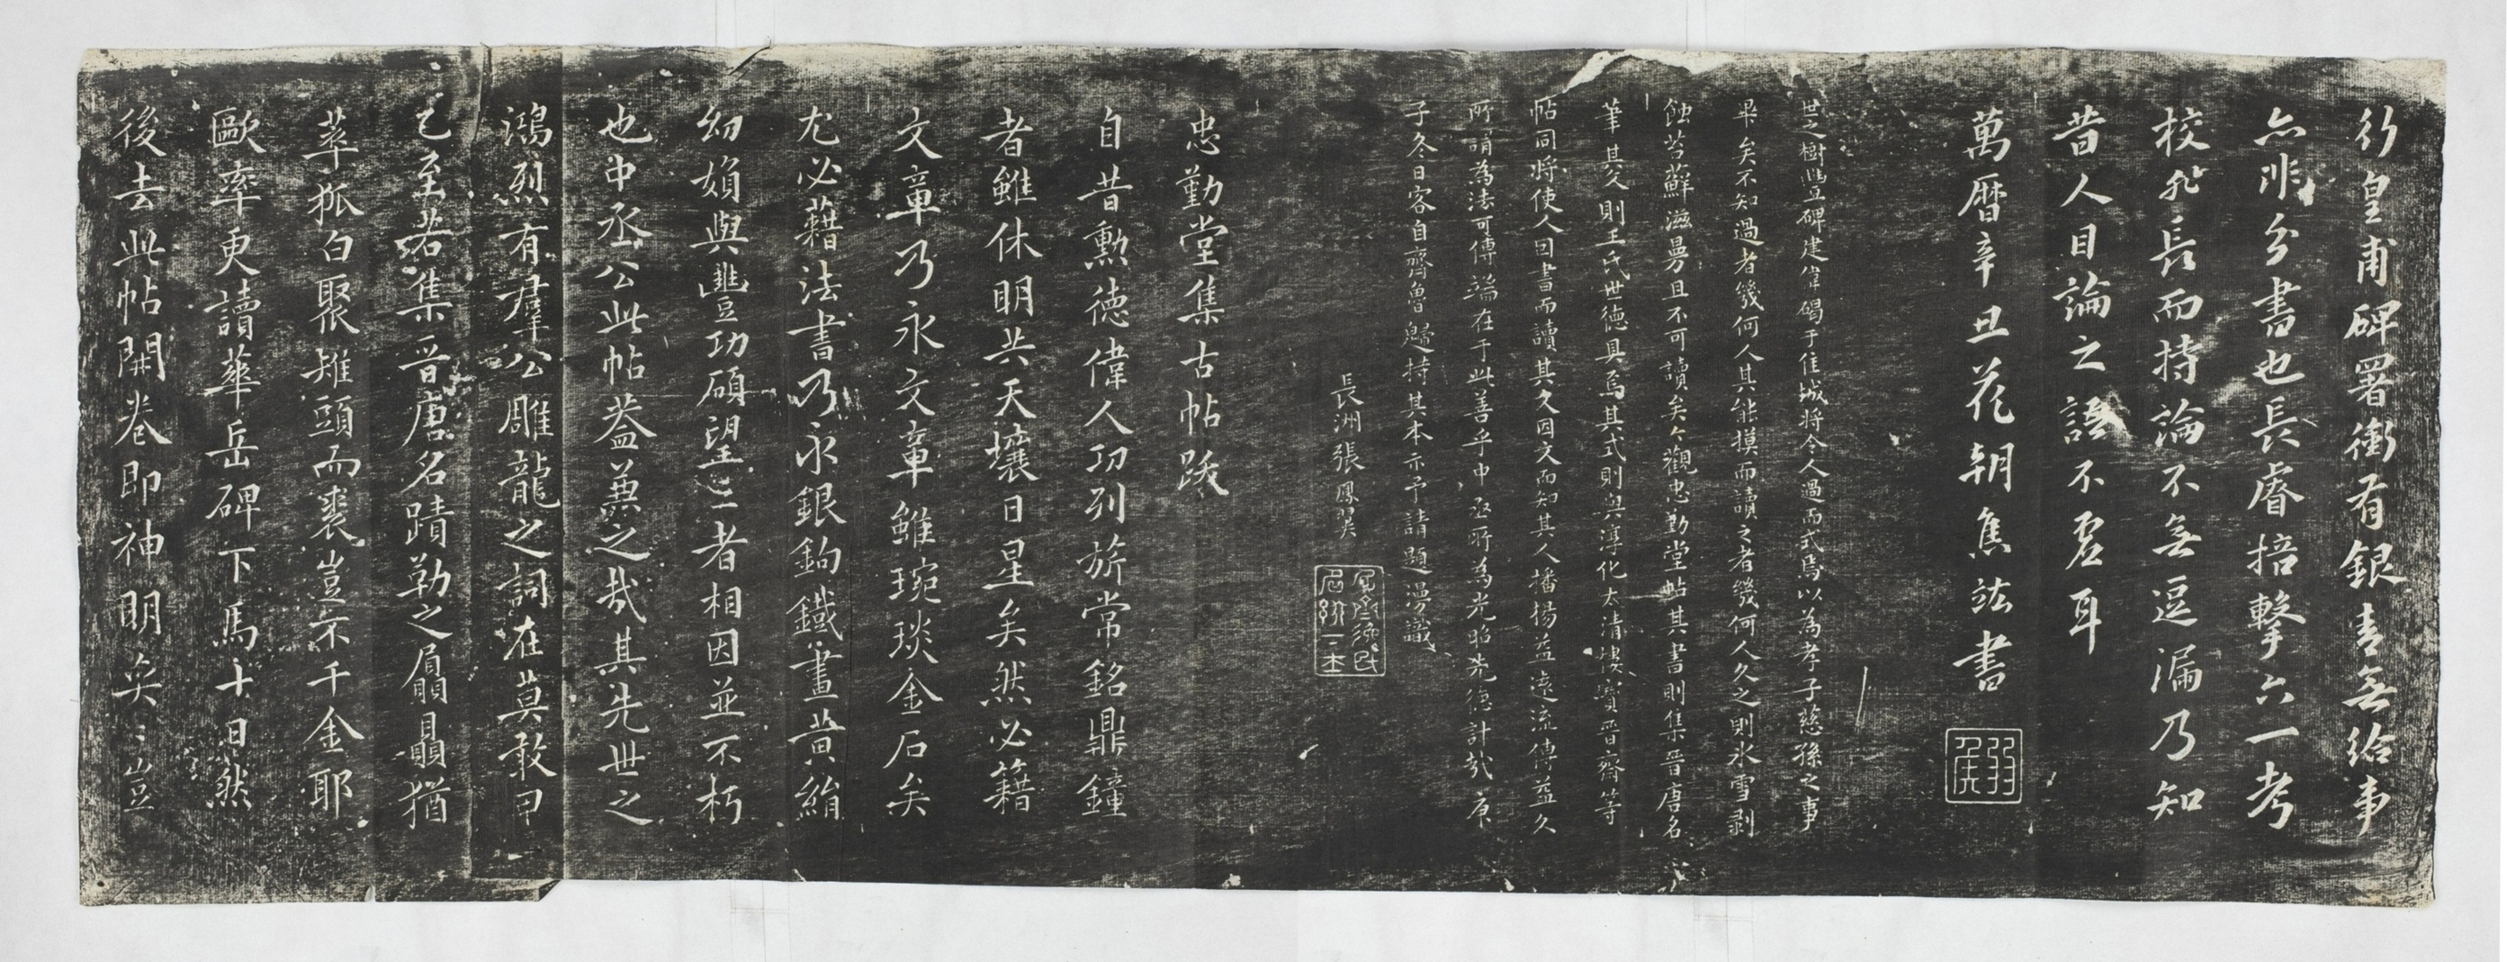 行皇甫碑署銜有銀青無給事
亦非分書也長睿掊擊六一考
校非長而持論不無逗漏乃知
昔人目論之語不虛耳
萬曆辛丑花朝焦竑書
世之樹豐碑建偉碣于隹城將令人過而式焉以為孝子慈孫之事
畢矣不知過者幾何人其能摸而讀之者幾何人久之則氷雪剥
蝕苔蘚滋曼且不可讀矣今觀忠勤堂帖其書則集晉唐名
筆其文則王氏世德具焉其式則與淳化太清樓寶晉齋等
帖同將使人因書而讀其文因文而知其人播揚益遠流傳益久
所謂為法可傳端在于此善乎中丞所為光昭先德計哉庚
子冬日客自齊魯歸持其本示予請題漫識
長洲張鳳翼
忠勤堂集古帖跋
自昔勲德偉人功列旂常銘鼎鐘
者雖休明共天壤日星矣然必籍
文章乃永文章雖琬琰金石矣
尤必藉法書乃永銀鉤鐵畫黄絹
幼嬪與豐功碩望三者相因並不朽
也中丞公此帖葢兼之哉其先世之
鴻烈有羣公雕龍之詞在莫敢甲
乙至若集晉唐名蹟勒之贔屭猶
萃狐白聚雉頭而裘豈不千金耶
歐率更讀華岳碑下馬十日然
後去此帖開卷即神明矣矣豈